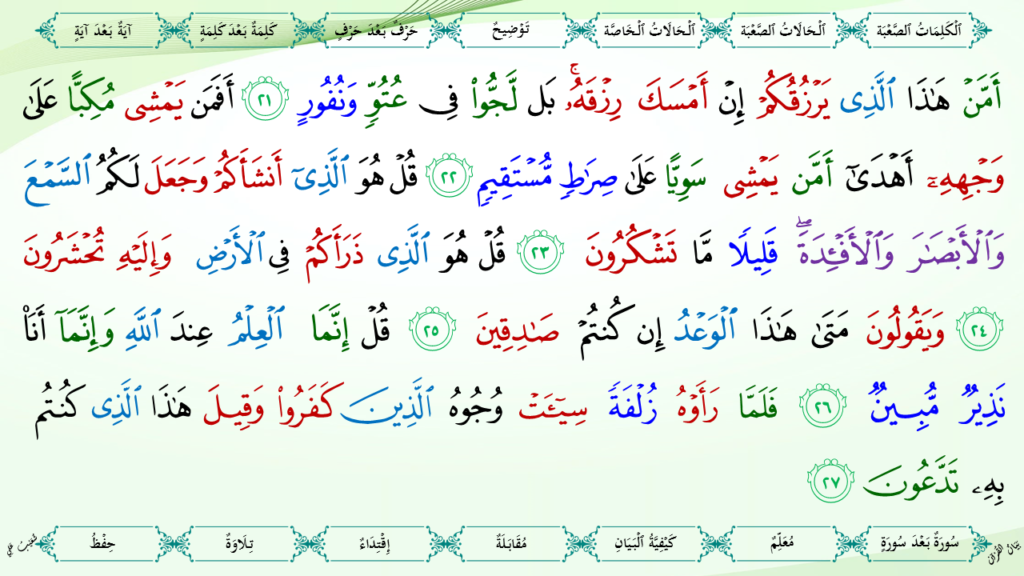 اَلْكَلِمَاتُ الصَّعْبَة اَلْحَالَاتُ الصَّعْبَة اَلْحَالَاتُ الْخَاصَّة تَوْضِيحٌ حَرْفٌ بَعْدَ حَرْفٍ كَلِمَةٌ بَعْدَ كَلِمَةٍ آيَةٌ بَعْدَ آيَةٍ
أَمَّنْ هَٰذَا ٱلَّذِى يَرْزُقُكُمْ إِنْ أَمْسَكَ رِزْقَهُۥ ۚ بَل لَّجُّوا۟ فِى عُتُوٍّ وَنُفُورٍ ٢١ أَفَمَن يَمْشِى مُكِبًّا عَلَىٰ
وَجْهِهِۦٓ أَهْدَىٰٓ أَمَّن يَمْشِى سَوِيًّا عَلَىٰ صِرَٰطٍ مُّسْتَقِيمٍ ٢٢ قُلْ هُوَ ٱلَّذِىٓ أَنشَأَكُمْ وَجَعَلَ لَكُمُ ٱلسَّمْعَ
وَٱلْأَبْصَٰرَ وَٱلْأَفْـِٔدَةَ ۖ قَلِيلًا مَّا تَشْكُرُونَ ٢٣ قُلْ هُوَ ٱلَّذِى ذَرَأَكُمْ فِى ٱلْأَرْضِ وَإِلَيْهِ تُحْشَرُونَ
٢٤ وَيَقُولُونَ مَتَىٰ هَٰذَا ٱلْوَعْدُ إِن كُنتُمْ صَٰدِقِينَ ٢٥ قُلْ إِنَّمَا ٱلْعِلْمُ عِندَ ٱللَّهِ وَإِنَّمَآ أَنَا۠
نَذِيرٌ مُّبِينٌ ٢٦ فَلَمَّا رَأَوْهُ زُلْفَةً سِيٓـَٔتْ وُجُوهُ ٱلَّذِينَ كَفَرُوا۟ وَقِيلَ هَٰذَا ٱلَّذِى كُنتُم
بِهِۦ تَدَّعُونَ ٢٧
سُورَةٌ بَعْدَ سُورَةٍ مُعَلِّمٌ كَيْفِيَّةُ الْبَيَانِ مُقَابَلَةٌ إِقْتِدَاءٌ تِلَاوَةٌ حِفْظُ